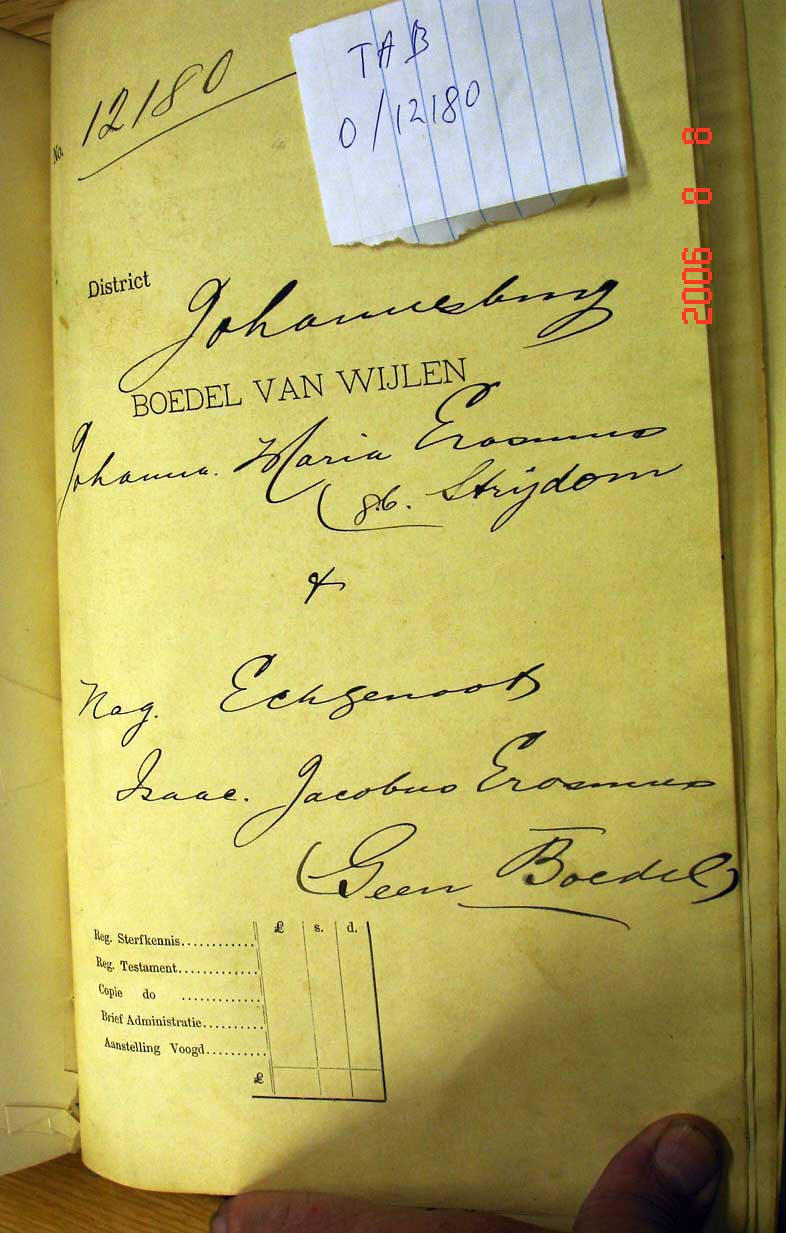 TAB
0/12180
No. 12180
2006 8 8
District Johannesburg
BOEDEL VAN WIJLEN
Johanna. Maria Erasmus
(gb. Strijdom
&
Nag. Echgenoot
Isaac. Jacobus Erasmus
(Geen Boedel)
£ s. d.
Reg. Sterfkennis............
Reg. Testament.............
Copie do ............
Brief Administratie..........
Aanstelling Voogd..........
£